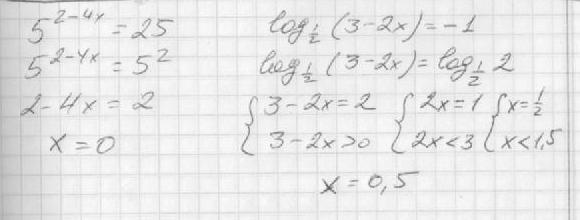 5^{2-4x} = 25
5^{2-4x} = 5^2
2-4x = 2
x = 0
log_{1/2} (3-2x) = -1
log_{1/2} (3-2x) = log_{1/2} 2
{ 3-2x = 2 { 2x = 1 { x = 1/2
{ 3-2x > 0 { 2x < 3 { x < 1,5
x = 0,5